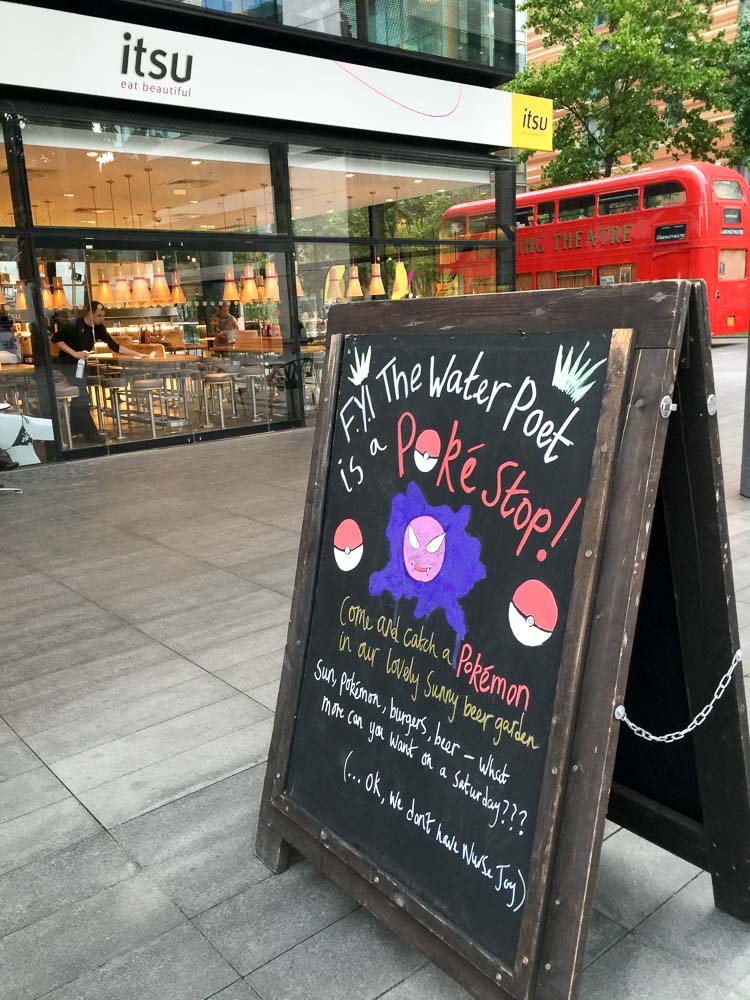 itsu
eat beautiful
itsu
ING THEATRE
F.Y.I The Water Poet
is a Poké Stop!
Come and catch a Pokémon
in our lovely sunny beer garden
Sun, pokémon, burgers, beer - what
more can you want on a saturday???
(... OK, we don't have Nurse Joy)